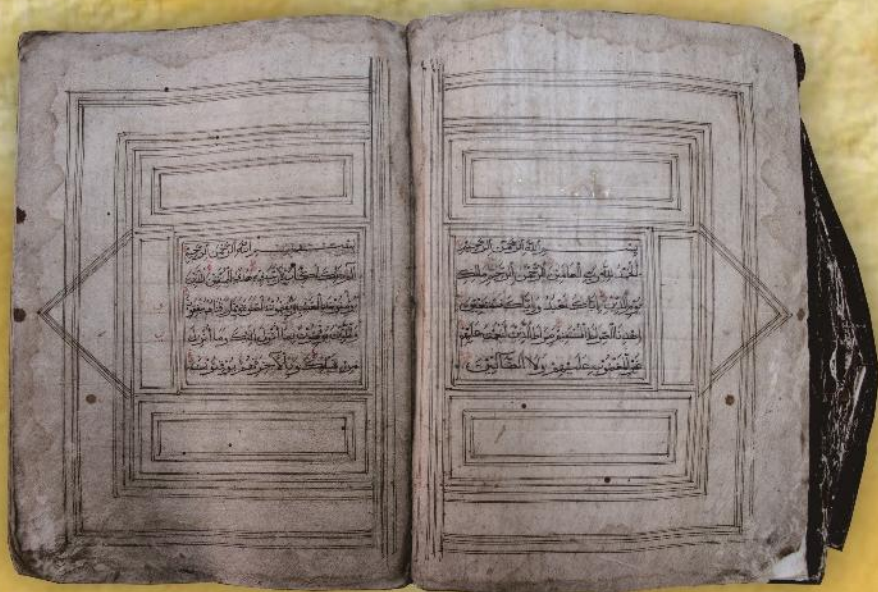 بسم الله الرحمن الرحيم
الحمد لله رب العالمين الرحمن الرحيم ملك
يوم الدين إياك نعبد وإياك نستعين
اهدنا الصراط المستقيم صراط الذين أنعمت عليهم
غير المغضوب عليهم ولا الضالين
بسم الله الرحمن الرحيم
الم ذلك الكتاب لا ريب فيه هدى للمتقين الذين
يؤمنون بالغيب ويقيمون الصلوة ومما رزقناهم ينفقون
والذين يؤمنون بما أنزل إليك وما أنزل
من قبلك وبالآخرة هم يوقنون